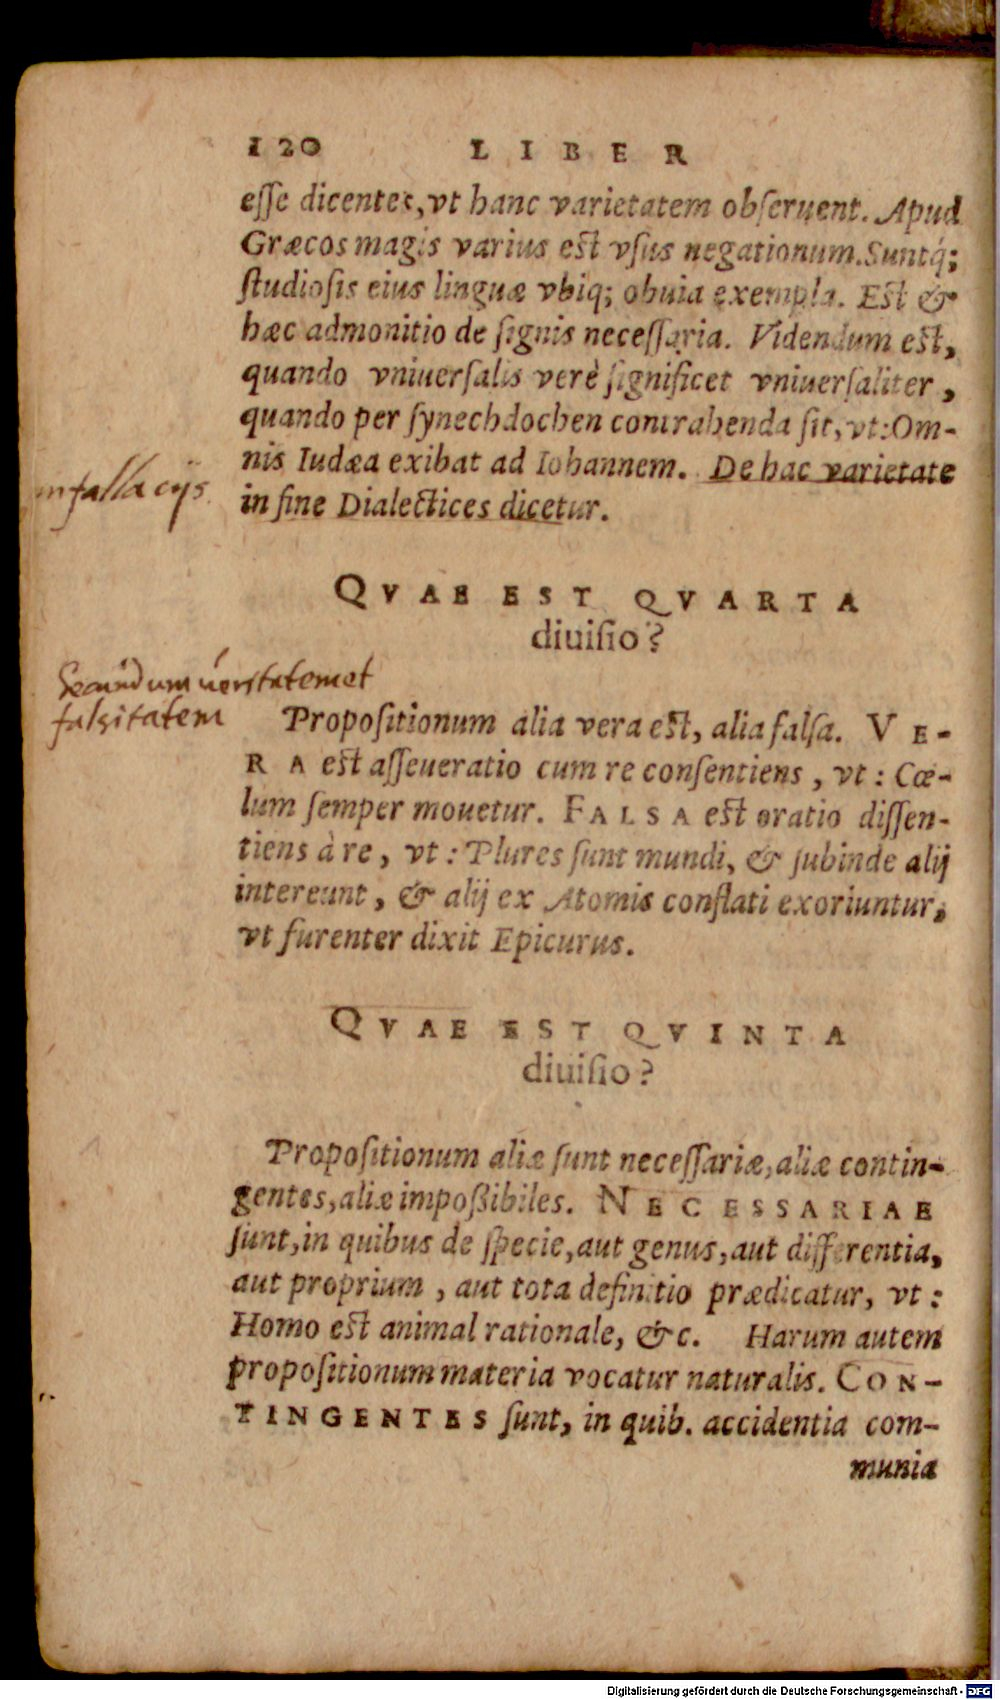 120 LIBER
esse dicentes, vt hanc varietatem obseruent. Apud
Græcos magis varius est vsus negationum. Suntq́;
studiosis eius linguæ vbiq; obuia exempla. Est &
hæc admonitio de signis necessaria. Videndum est,
quando vniuersalis verè significet vniuersaliter,
quando per synechdochen contrahenda sit, vt: Om-
nis Iudæa exibat ad Iohannem. De hac varietate
in fallacijs.
in fine Dialectices dicetur.
QVAE EST QVARTA
diuisio?
Secundum veritatem et
falsitatem
Propositionum alia vera est, alia falsa. VE-
RA est asseueratio cum re consentiens, vt: Cœ-
lum semper mouetur. FALSA est oratio dissen-
tiens à re, vt: Plures sunt mundi, & subinde alij
intereunt, & alij ex Atomis conflati exoriuntur,
vt furenter dixit Epicurus.
QVAE EST QVINTA
diuisio?
Propositionum aliæ sunt necessariæ, aliæ contin-
gentes, aliæ impoßibiles. NECESSARIAE
sunt, in quibus de specie, aut genus, aut differentia,
aut proprium, aut tota definitio prædicatur, vt:
Homo est animal rationale, &c. Harum autem
propositionum materia vocatur naturalis. CON-
TINGENTES sunt, in quib. accidentia com-
munia
Digitalisierung gefördert durch die Deutsche Forschungsgemeinschaft - DFG